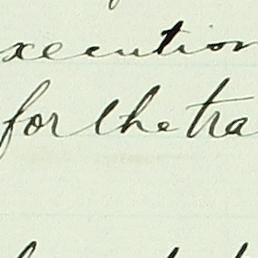 xecution
for the tra